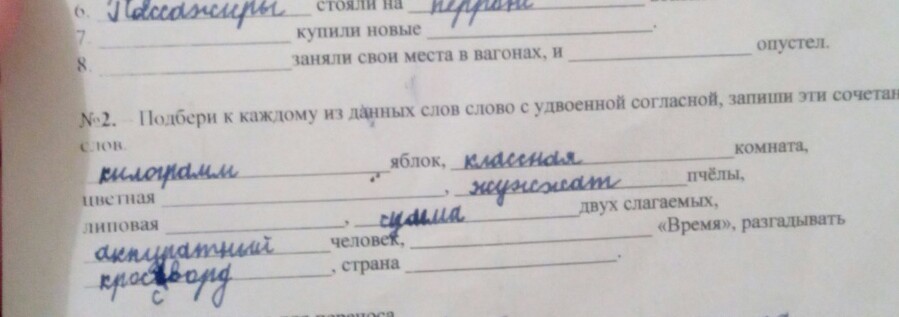 6. Пассажиры стояли на перроне
7. купили новые .
8. заняли свои места в вагонах, и опустел.
№2. Подбери к каждому из данных слов слово с удвоенной согласной, запиши эти сочетан
слов.
килограмм яблок, классная комната,
цветная , жужжат пчёлы,
липовая , сумма двух слагаемых,
аккуратный человек, «Время», разгадывать
кроссворд , страна .
переноса